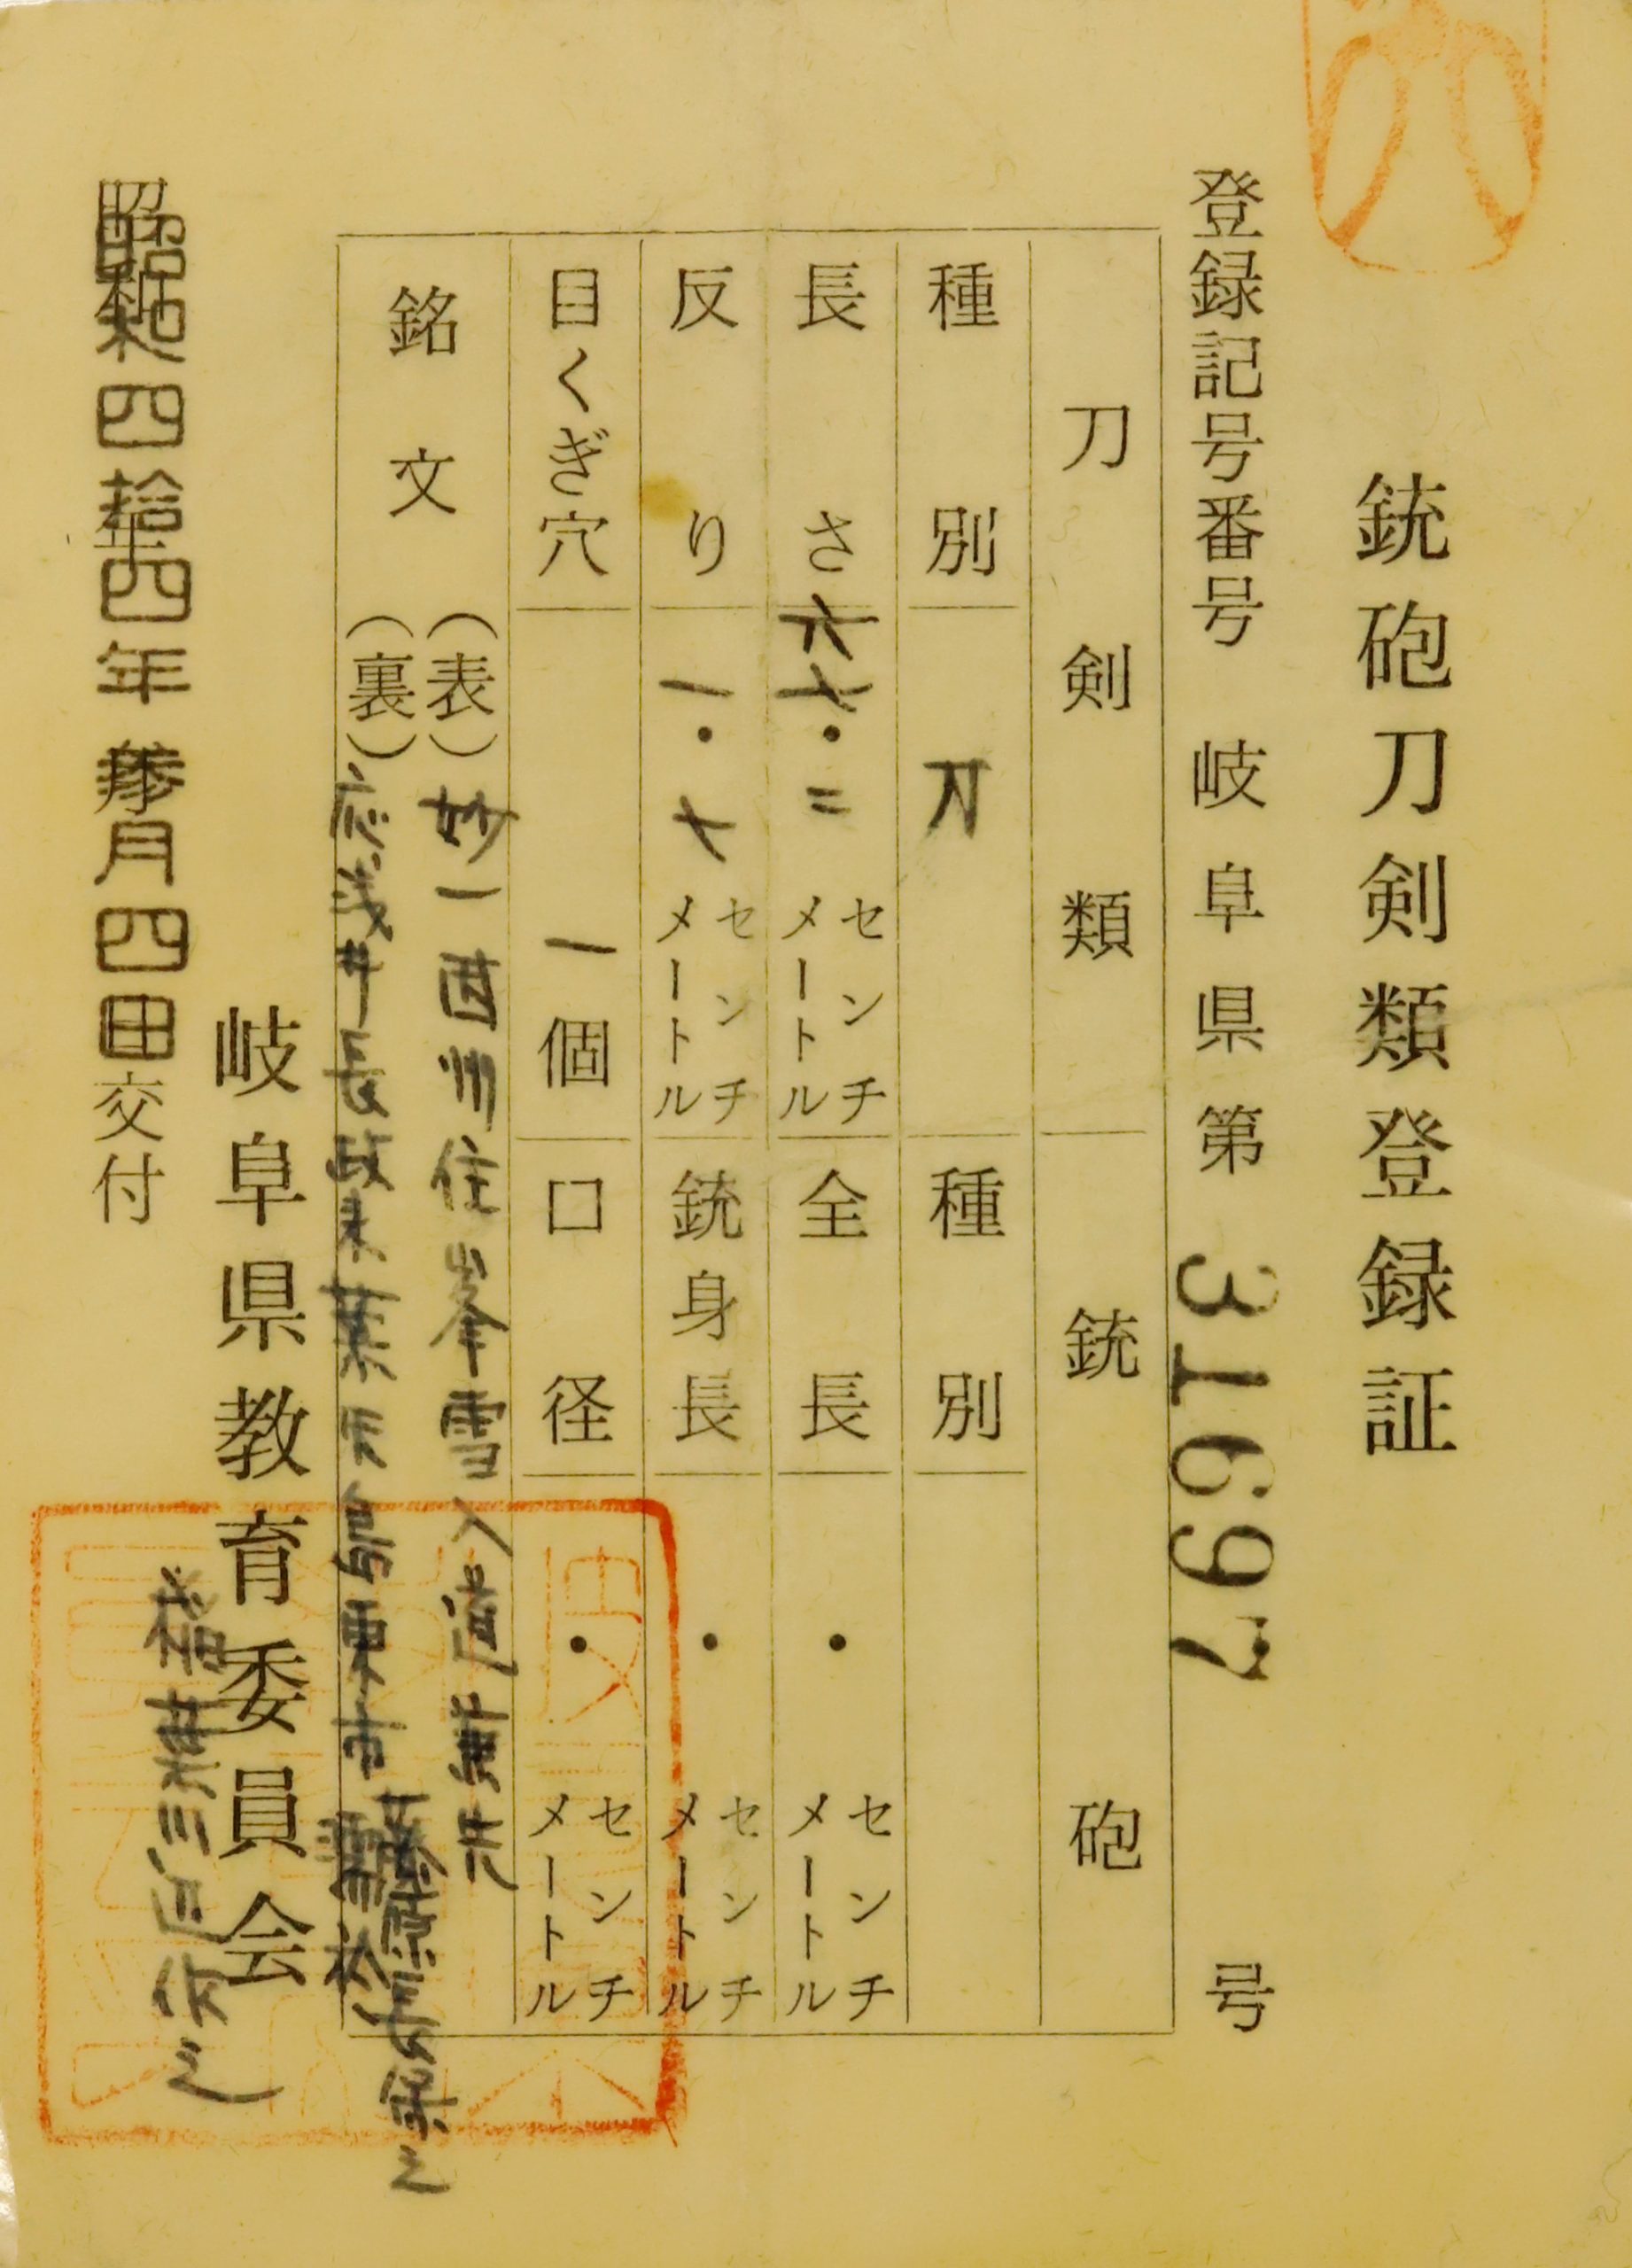 銃砲刀剣類登録証
登録記号番号 岐阜県第 31697 号
刀剣類 銃砲
種別 刀 種別
長さ 六七・二 センチメートル 全長 ・ センチメートル
反り 一・七 センチメートル 銃身長 ・ センチメートル
目くぎ穴 一個 口径 ・ センチメートル
銘文 (表) 妙一 州住峯雪入道兼先
(裏) 応浅井長政末葉矢島東市
藤原長保之
岐阜県教育委員会
稲葉川辺作之
昭和四拾四年 月四日交付